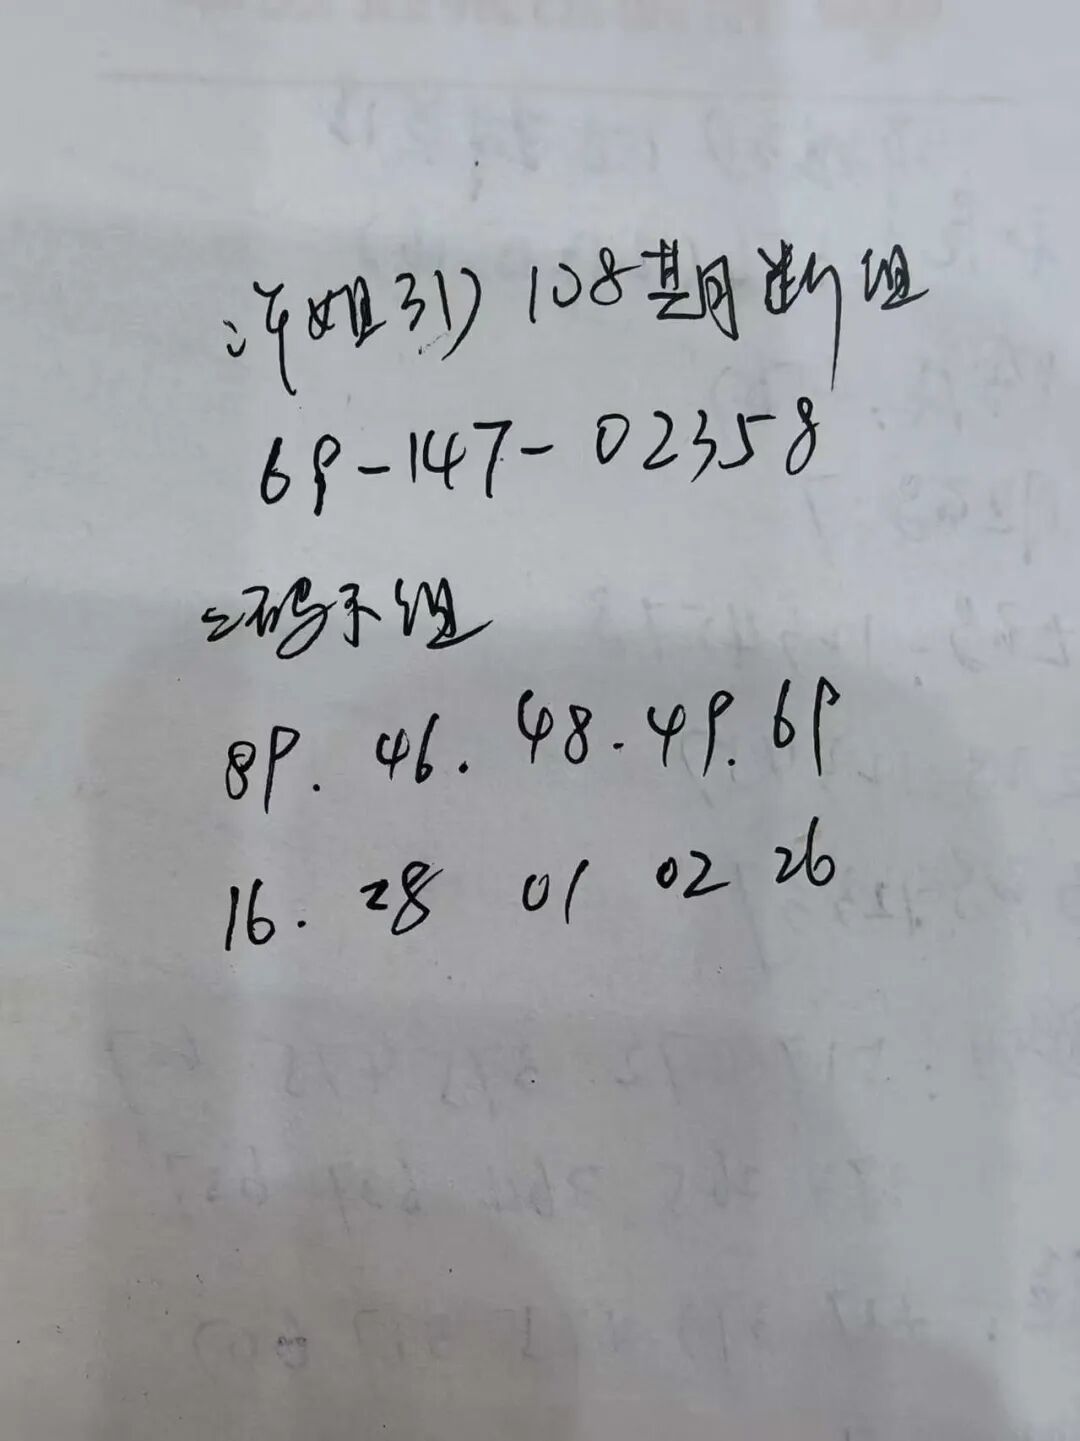 许姐3D 108期断组
69-147-02358
二码不组
89. 46. 48. 49. 69
16. 28 01 02 26